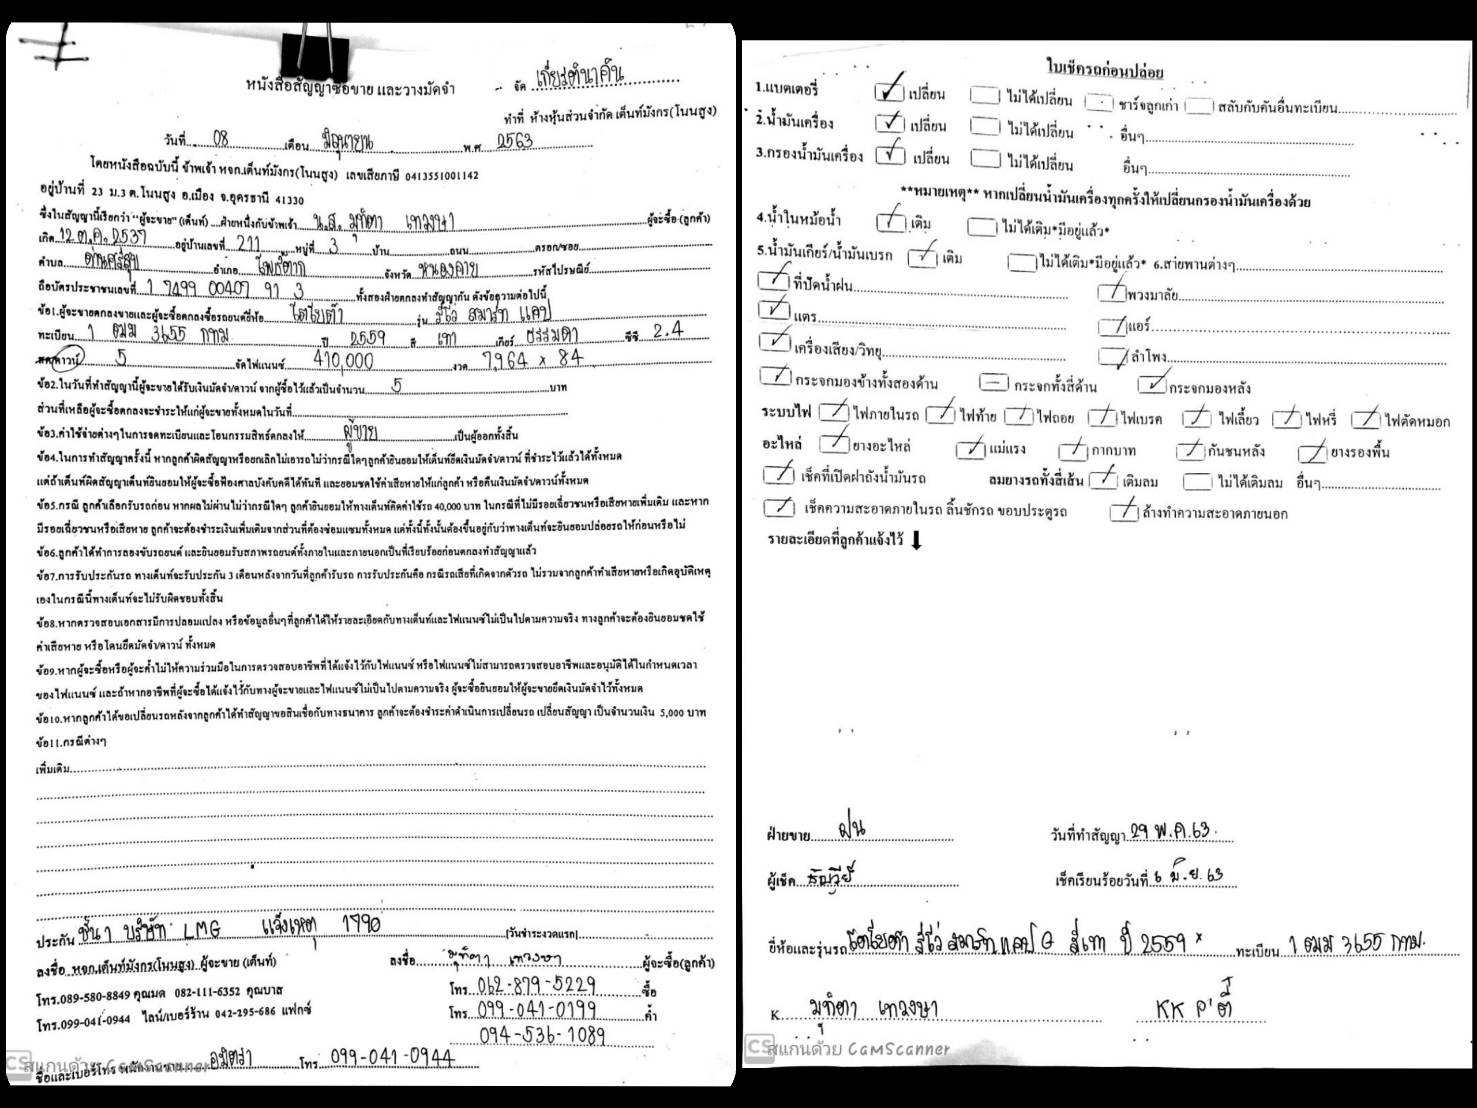 หนังสือสัญญาซื้อขาย และวางมัดจำ
จัด เกียรตินาคิน
ทำที่ ห้างหุ้นส่วนจำกัด เต็นท์มังกร(โนนสูง)
วันที่ 08 เดือน มิถุนายน พ.ศ. 2563
โดยหนังสือฉบับนี้ ข้าพเจ้า หจก.เต็นท์มังกร(โนนสูง) เลขเสียภาษี 0413551001142
อยู่บ้านที่ 23 ม.3 ต.โนนสูง อ.เมือง จ.อุดรธานี 41330
ซึ่งในสัญญานี้เรียกว่า "ผู้จะขาย" (เต็นท์) ฝ่ายหนึ่งกับข้าพเจ้า น.ส. มุทิตา เทวงษา ผู้จะซื้อ (ลูกค้า)
เกิด 12 ต.ค. 2537 อยู่บ้านเลขที่ 211 หมู่ที่ 3 บ้าน ถนน ตรอก/ซอย
ตำบล ด่านศรีสุข อำเภอ โพธิ์ตาก จังหวัด หนองคาย รหัสไปรษณีย์
ถือบัตรประชาชนเลขที่ 1 7499 00407 91 3 ทั้งสองฝ่ายตกลงทำสัญญากัน ดังข้อความต่อไปนี้
ข้อ1.ผู้จะขายตกลงขายและผู้จะซื้อตกลงซื้อรถยนต์ยี่ห้อ โตโยต้า รุ่น รีโว่ สมาร์ท แคป
ทะเบียน 1 ฒฒ 3655 กทม ปี 2559 สี เทา เกียร์ ธรรมดา ซีซี 2.4
สด/ดาวน์ 5 จัดไฟแนนซ์ 410,000 งวด 7,964 x 84
ข้อ2.ในวันที่ทำสัญญานี้ผู้จะขายได้รับเงินมัดจำ/ดาวน์ จากผู้ซื้อไว้แล้วเป็นจำนวน 5 บาท
ส่วนที่เหลือผู้จะซื้อตกลงจะชำระให้แก่ผู้จะขายทั้งหมดในวันที่
ข้อ3.ค่าใช้จ่ายต่างๆในการจดทะเบียนและโอนกรรมสิทธิ์ตกลงให้ ผู้ขาย เป็นผู้ออกทั้งสิ้น
ข้อ4.ในการทำสัญญาครั้งนี้ หากลูกค้าผิดสัญญาหรือยกเลิกไม่เอารถไม่ว่ากรณีใดๆลูกค้ายินยอมให้เต็นท์ยึดเงินมัดจำ/ดาวน์ ที่ชำระไว้แล้วได้ทั้งหมด
แต่ถ้าเต็นท์ผิดสัญญาเต็นท์ยินยอมให้ผู้จะซื้อฟ้องศาลบังคับคดีได้ทันที และยอมชดใช้ค่าเสียหายให้แก่ลูกค้า หรือคืนเงินมัดจำ/ดาวน์ทั้งหมด
ข้อ5.กรณี ลูกค้าเลือกรับรถก่อน หากผลไม่ผ่านไม่ว่ากรณีใดๆ ลูกค้ายินยอมให้ทางเต็นท์คิดค่าใช้รถ 40,000 บาท ในกรณีที่ไม่มีรอยเฉี่ยวชนหรือเสียหายเพิ่มเติม และหาก
มีรอยเฉี่ยวชนหรือเสียหาย ลูกค้าจะต้องชำระเงินเพิ่มเติมจากส่วนที่ต้องซ่อมแซมทั้งหมด แต่ทั้งนี้ทั้งนั้นต้องขึ้นอยู่กับว่าทางเต็นท์จะยินยอมปล่อยรถให้ก่อนหรือไม่
ข้อ6.ลูกค้าได้ทำการลองขับรถยนต์ และยินยอมรับสภาพรถยนต์ทั้งภายในและภายนอกเป็นที่เรียบร้อยก่อนตกลงทำสัญญาแล้ว
ข้อ7.การรับประกันรถ ทางเต็นท์จะรับประกัน 3 เดือนหลังจากวันที่ลูกค้ารับรถ การรับประกันคือ กรณีรถเสียที่เกิดจากตัวรถ ไม่รวมจากลูกค้าทำเสียหายหรือเกิดอุบัติเหตุ
เองในกรณีนี้ทางเต็นท์จะไม่รับผิดชอบทั้งสิ้น
ข้อ8.หากตรวจสอบเอกสารมีการปลอมแปลง หรือข้อมูลอื่นๆที่ลูกค้าได้ให้รายละเอียดกับทางเต็นท์และไฟแนนซ์ไม่เป็นไปตามความจริง ทางลูกค้าจะต้องยินยอมชดใช้
ค่าเสียหาย หรือโดนยึดมัดจำ/ดาวน์ ทั้งหมด
ข้อ9.หากผู้จะซื้อหรือผู้จะค้ำไม่ให้ความร่วมมือในการตรวจสอบอาชีพที่ได้แจ้งไว้กับไฟแนนซ์ หรือไฟแนนซ์ไม่สามารถตรวจสอบอาชีพและอนุมัติได้ในกำหนดเวลา
ของไฟแนนซ์ และถ้าหากอาชีพที่ผู้จะซื้อได้แจ้งไว้กับทางผู้จะขายและไฟแนนซ์ไม่เป็นไปตามความจริง ผู้จะซื้อยินยอมให้ผู้จะขายยึดเงินมัดจำไว้ทั้งหมด
ข้อ10.หากลูกค้าได้ขอเปลี่ยนรถหลังจากลูกค้าได้ทำสัญญาขอสินเชื่อกับทางธนาคาร ลูกค้าจะต้องชำระค่าดำเนินการเปลี่ยนรถ เปลี่ยนสัญญา เป็นจำนวนเงิน 5,000 บาท
ข้อ11.กรณีต่างๆ
เพิ่มเติม
ประกัน ชั้น 1 บริษัท LMG แจ้งเหตุ 1790 [วันชำระงวดแรก]
ลงชื่อ หจก.เต็นท์มังกร(โนนสูง) ผู้จะขาย (เต็นท์) ลงชื่อ มุทิตา เทวงษา ผู้จะซื้อ(ลูกค้า)
โทร.089-580-8849 คุณมด 082-111-6352 คุณบาส โทร. 062-879-5229 ซื้อ
โทร.099-041-0944 ไลน์/เบอร์ร้าน 042-295-686 แฟกซ์ โทร. 099-041-0199 ค้ำ
094-536-1089
ชื่อและเบอร์โทร พนักงานขาย อมิตรา โทร 099-041-0944
CS สแกนด้วย CamScanner
ใบเช็ครถก่อนปล่อย
1.แบตเตอรี่ ✓ เปลี่ยน ไม่ได้เปลี่ยน ชาร์จลูกเก่า สลับกับคันอื่นทะเบียน
2.น้ำมันเครื่อง ✓ เปลี่ยน ไม่ได้เปลี่ยน อื่นๆ
3.กรองน้ำมันเครื่อง ✓ เปลี่ยน ไม่ได้เปลี่ยน อื่นๆ
**หมายเหตุ** หากเปลี่ยนน้ำมันเครื่องทุกครั้งให้เปลี่ยนกรองน้ำมันเครื่องด้วย
4.น้ำในหม้อน้ำ ✓ เติม ไม่ได้เติม*มีอยู่แล้ว*
5.น้ำมันเกียร์/น้ำมันเบรก ✓ เติม ไม่ได้เติม*มีอยู่แล้ว* 6.สายพานต่างๆ
✓ ที่ปัดน้ำฝน ✓ พวงมาลัย
✓ แตร ✓ แอร์
✓ เครื่องเสียง/วิทยุ ✓ ลำโพง
✓ กระจกมองข้างทั้งสองด้าน — กระจกทั้งสี่ด้าน ✓ กระจกมองหลัง
ระบบไฟ ✓ ไฟภายในรถ ✓ ไฟท้าย ✓ ไฟถอย ✓ ไฟเบรค ✓ ไฟเลี้ยว ✓ ไฟหรี่ ✓ ไฟตัดหมอก
อะไหล่ ✓ ยางอะไหล่ ✓ แม่แรง ✓ กากบาท ✓ กันชนหลัง ✓ ยางรองพื้น
✓ เช็คที่เปิดฝาถังน้ำมันรถ ลมยางรถทั้งสี่เส้น ✓ เติมลม ไม่ได้เติมลม อื่นๆ
✓ เช็คความสะอาดภายในรถ ลิ้นชักรถ ขอบประตูรถ ✓ ล้างทำความสะอาดภายนอก
รายละเอียดที่ลูกค้าแจ้งไว้ ⬇
ฝ่ายขาย ฝน วันที่ทำสัญญา 29 พ.ค.63.
ผู้เช็ค ธัญวีย์ เช็คเรียบร้อยวันที่ 6 มิ.ย. 63
ยี่ห้อและรุ่นรถ โตโยต้า รีโว่ สมาร์ทแคป G สีเทา ปี 2559 ทะเบียน 1 ฒฒ 3655 กทม.
K มุทิตา เทวงษา KK P'ตี๋
CS สแกนด้วย CamScanner